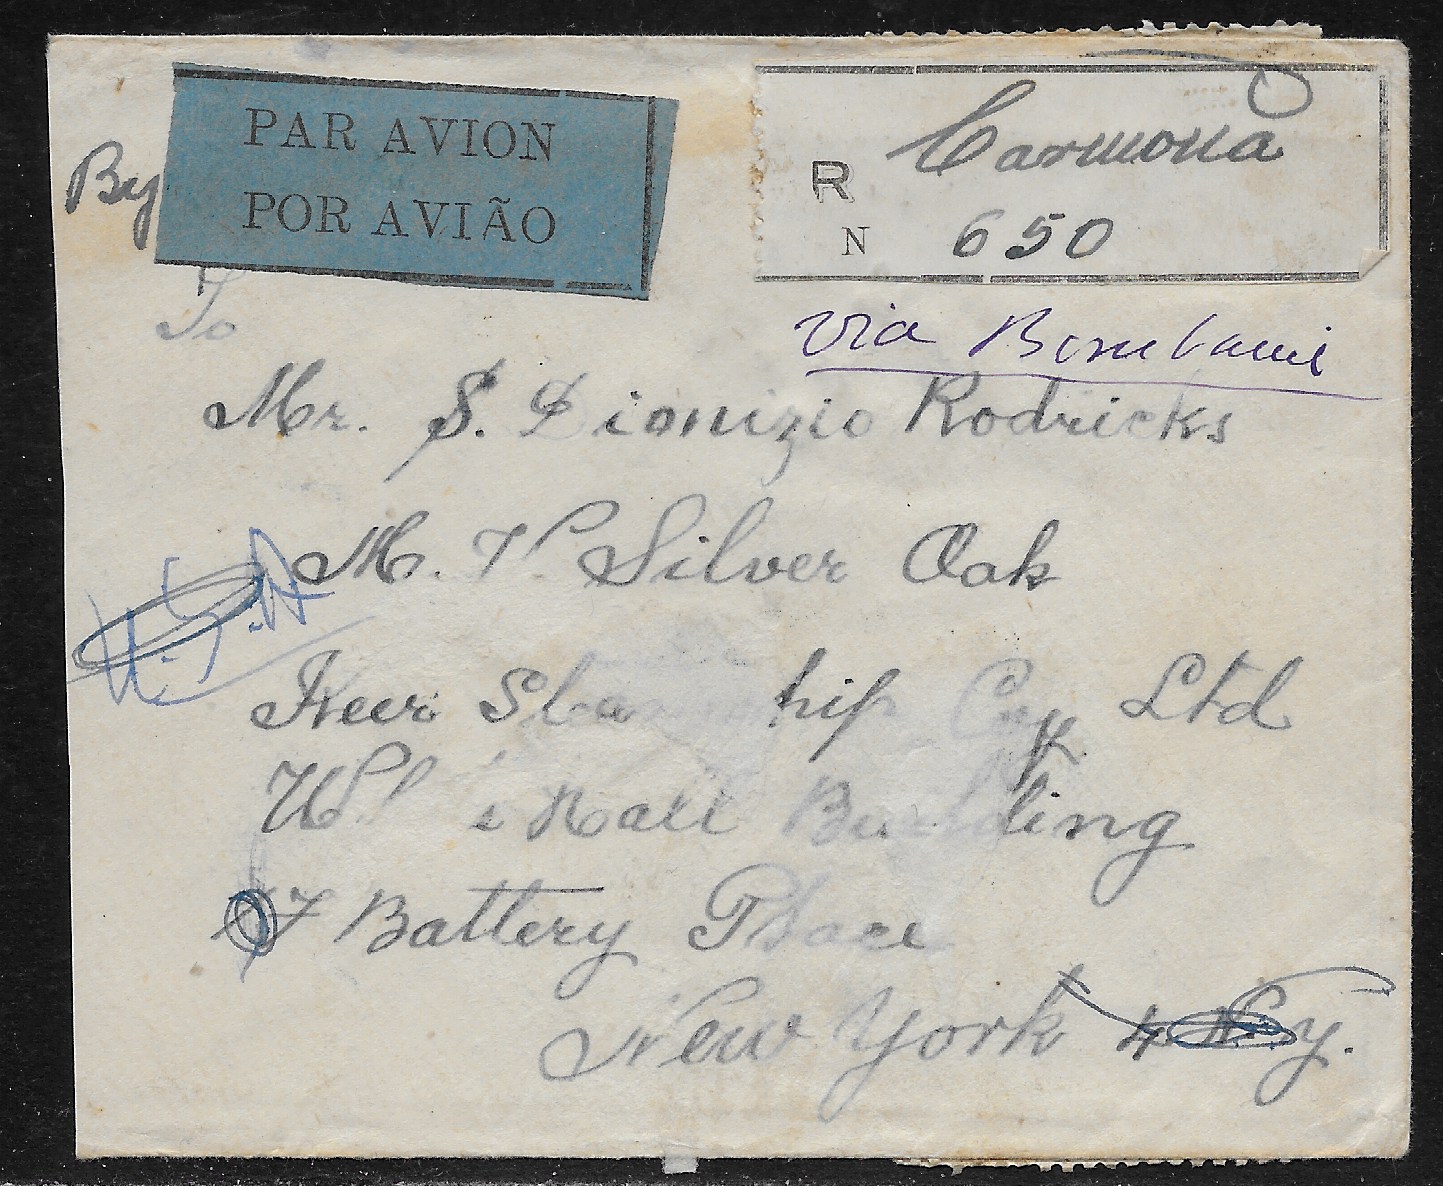 By
PAR AVION
POR AVIÃO
Carmona
R
N 650
via Bombaim
To
Mr. S. Dionizio Rodricks
M. V. Silver Oak
U.S.A
Keer Steamship Coy Ltd
Hall Building
17 Battery Place
New York 4 N.y.